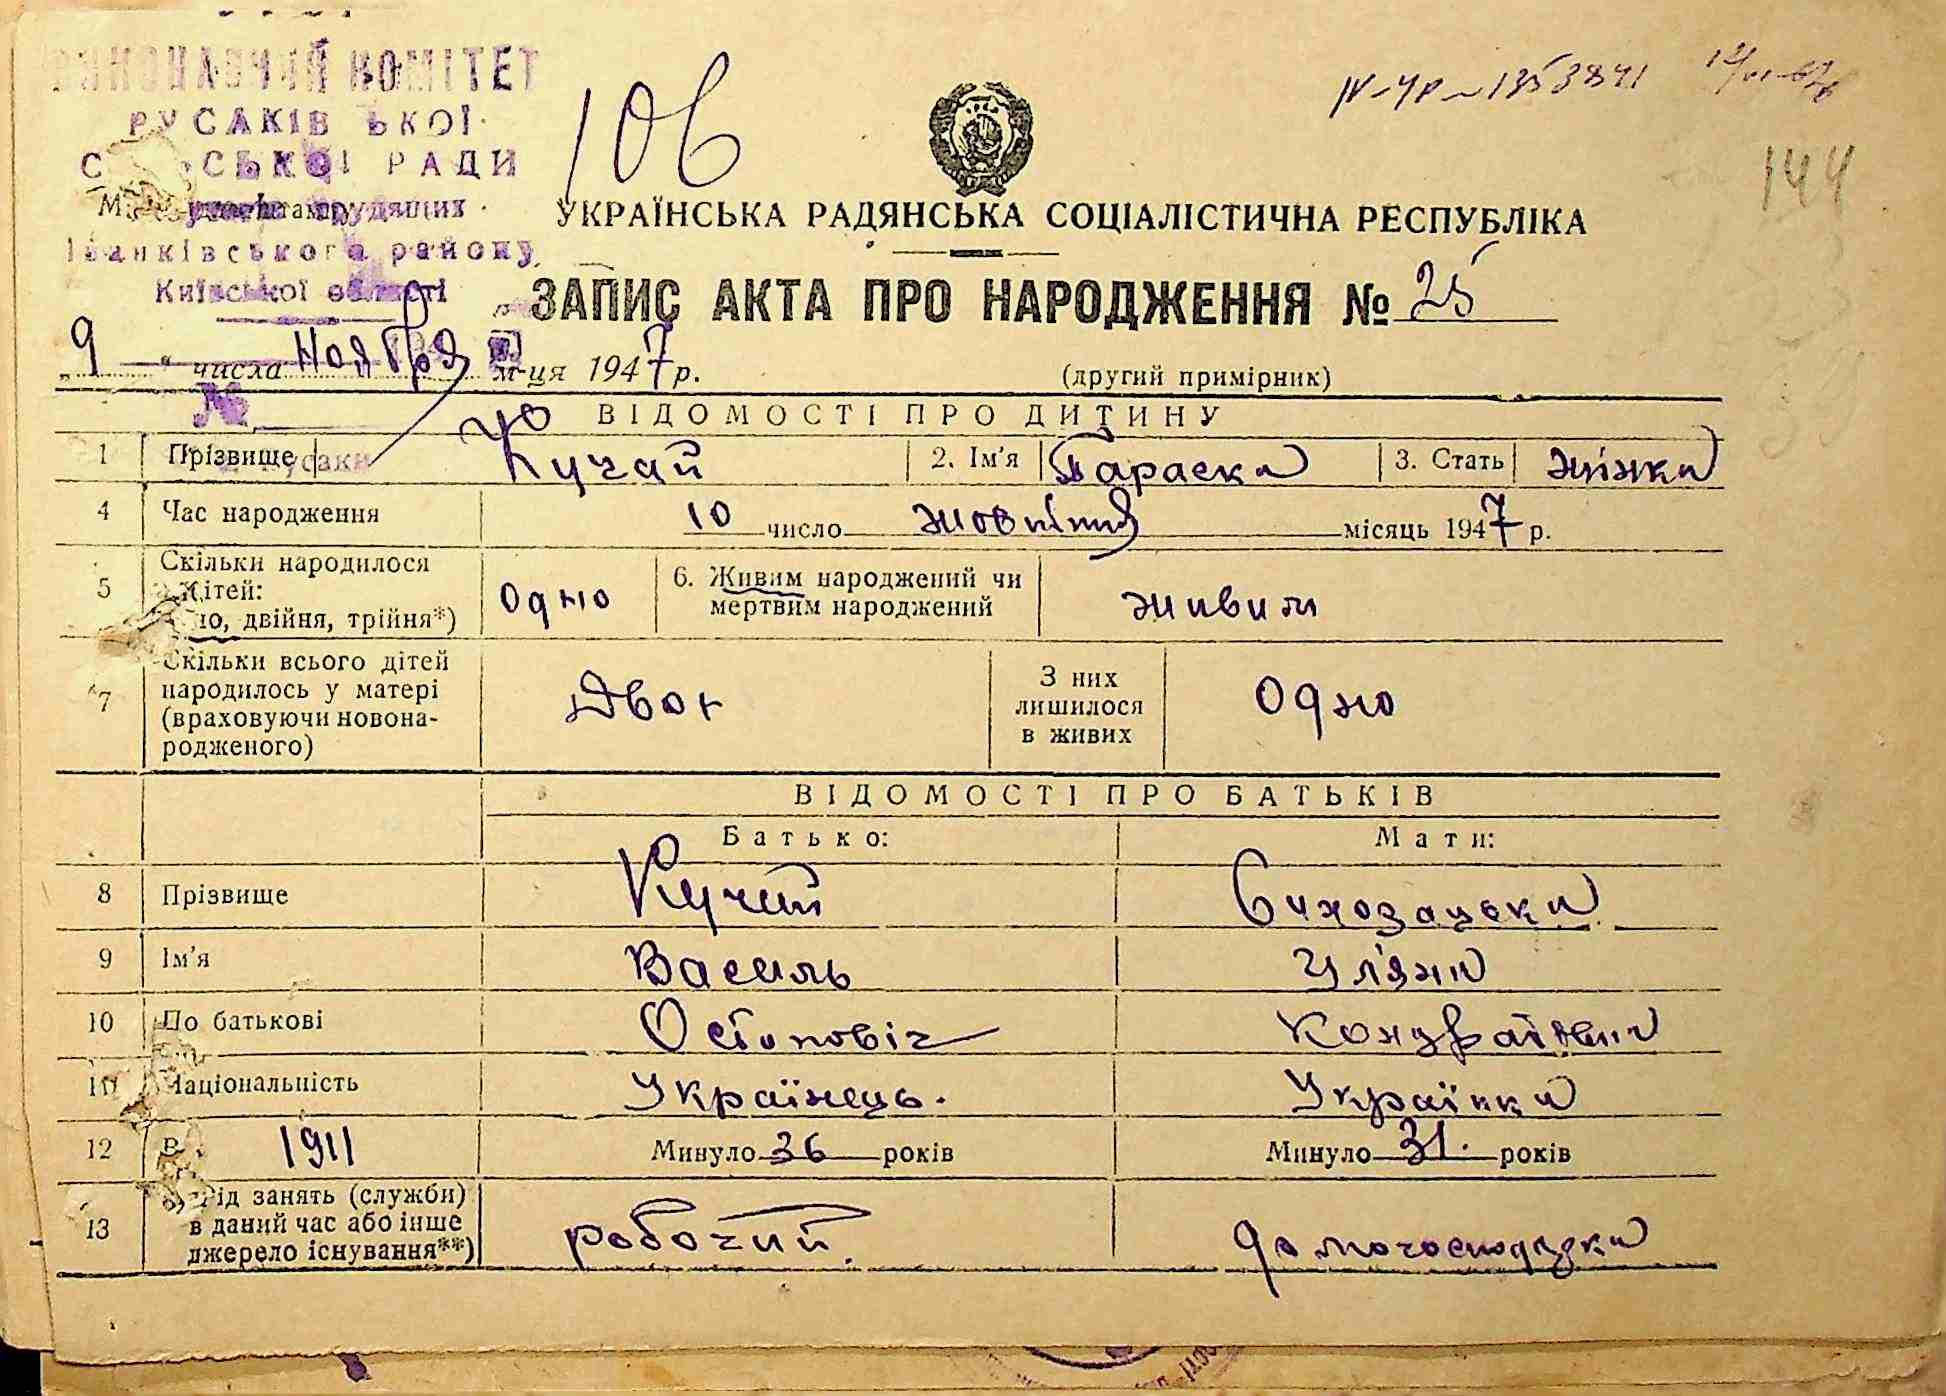 КОМІТЕТ
РУСАКІВ ЬКОЇ
РАДИ
Іванківського району
Київської області
106
144
УКРАЇНСЬКА РАДЯНСЬКА СОЦІАЛІСТИЧНА РЕСПУБЛІКА
ЗАПИС АКТА ПРО НАРОДЖЕННЯ № 25
„ 9 “ числа ноября м-ця 1947 р.
(другий примірник)
№
ВІДОМОСТІ ПРО ДИТИНУ
1 Прізвище Кучай 2. Ім'я Параска 3. Стать жінка
4 Час народження 10 число жовтня місяць 1947 р.
5 Скільки народилося дітей: двійня, трійня*) Одно 6. Живим народжений чи мертвим народжений живим
7 Скільки всього дітей народилось у матері (враховуючи новонародженого) Двоє З них лишилося в живих Одно
ВІДОМОСТІ ПРО БАТЬКІВ
Батько: Мати:
8 Прізвище Кучай
9 Ім'я Василь Уляна
10 По батькові Остапович
Національність Українець. Українка
12 1911 Минуло 36 років Минуло 31. років
13 Рід занять (служби) в даний час або інше джерело існування**) робочий. домогосподарка